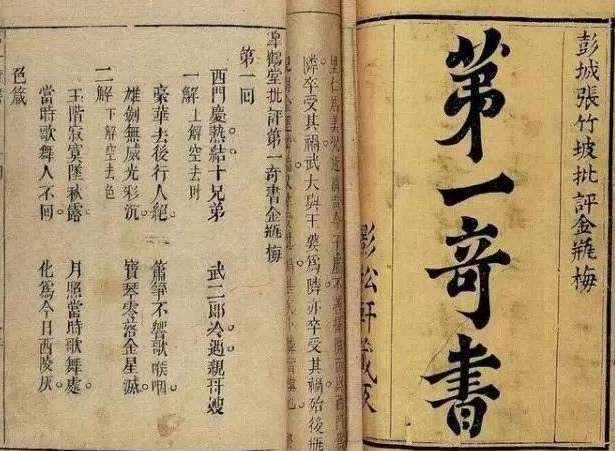 彭城張竹坡批評金瓶梅
苐一奇書
影松軒藏
隣卒受其禍武大與王婆為隣亦卒受其禍殆後瓶
皐鶴堂批評第一奇書金瓶梅
第一回
西門慶熱結十兄弟 武二郎冷遇親哥嫂
一解 上解空去財
豪華去後行人絕 簫箏不響歌喉咽
雄劍無威光彩沉 寶琴零落金星滅
二解 下解空去色
玉階寂寞墜秋露 月照當時歌舞處
當時歌舞人不回 化為今日西陵灰
色箴